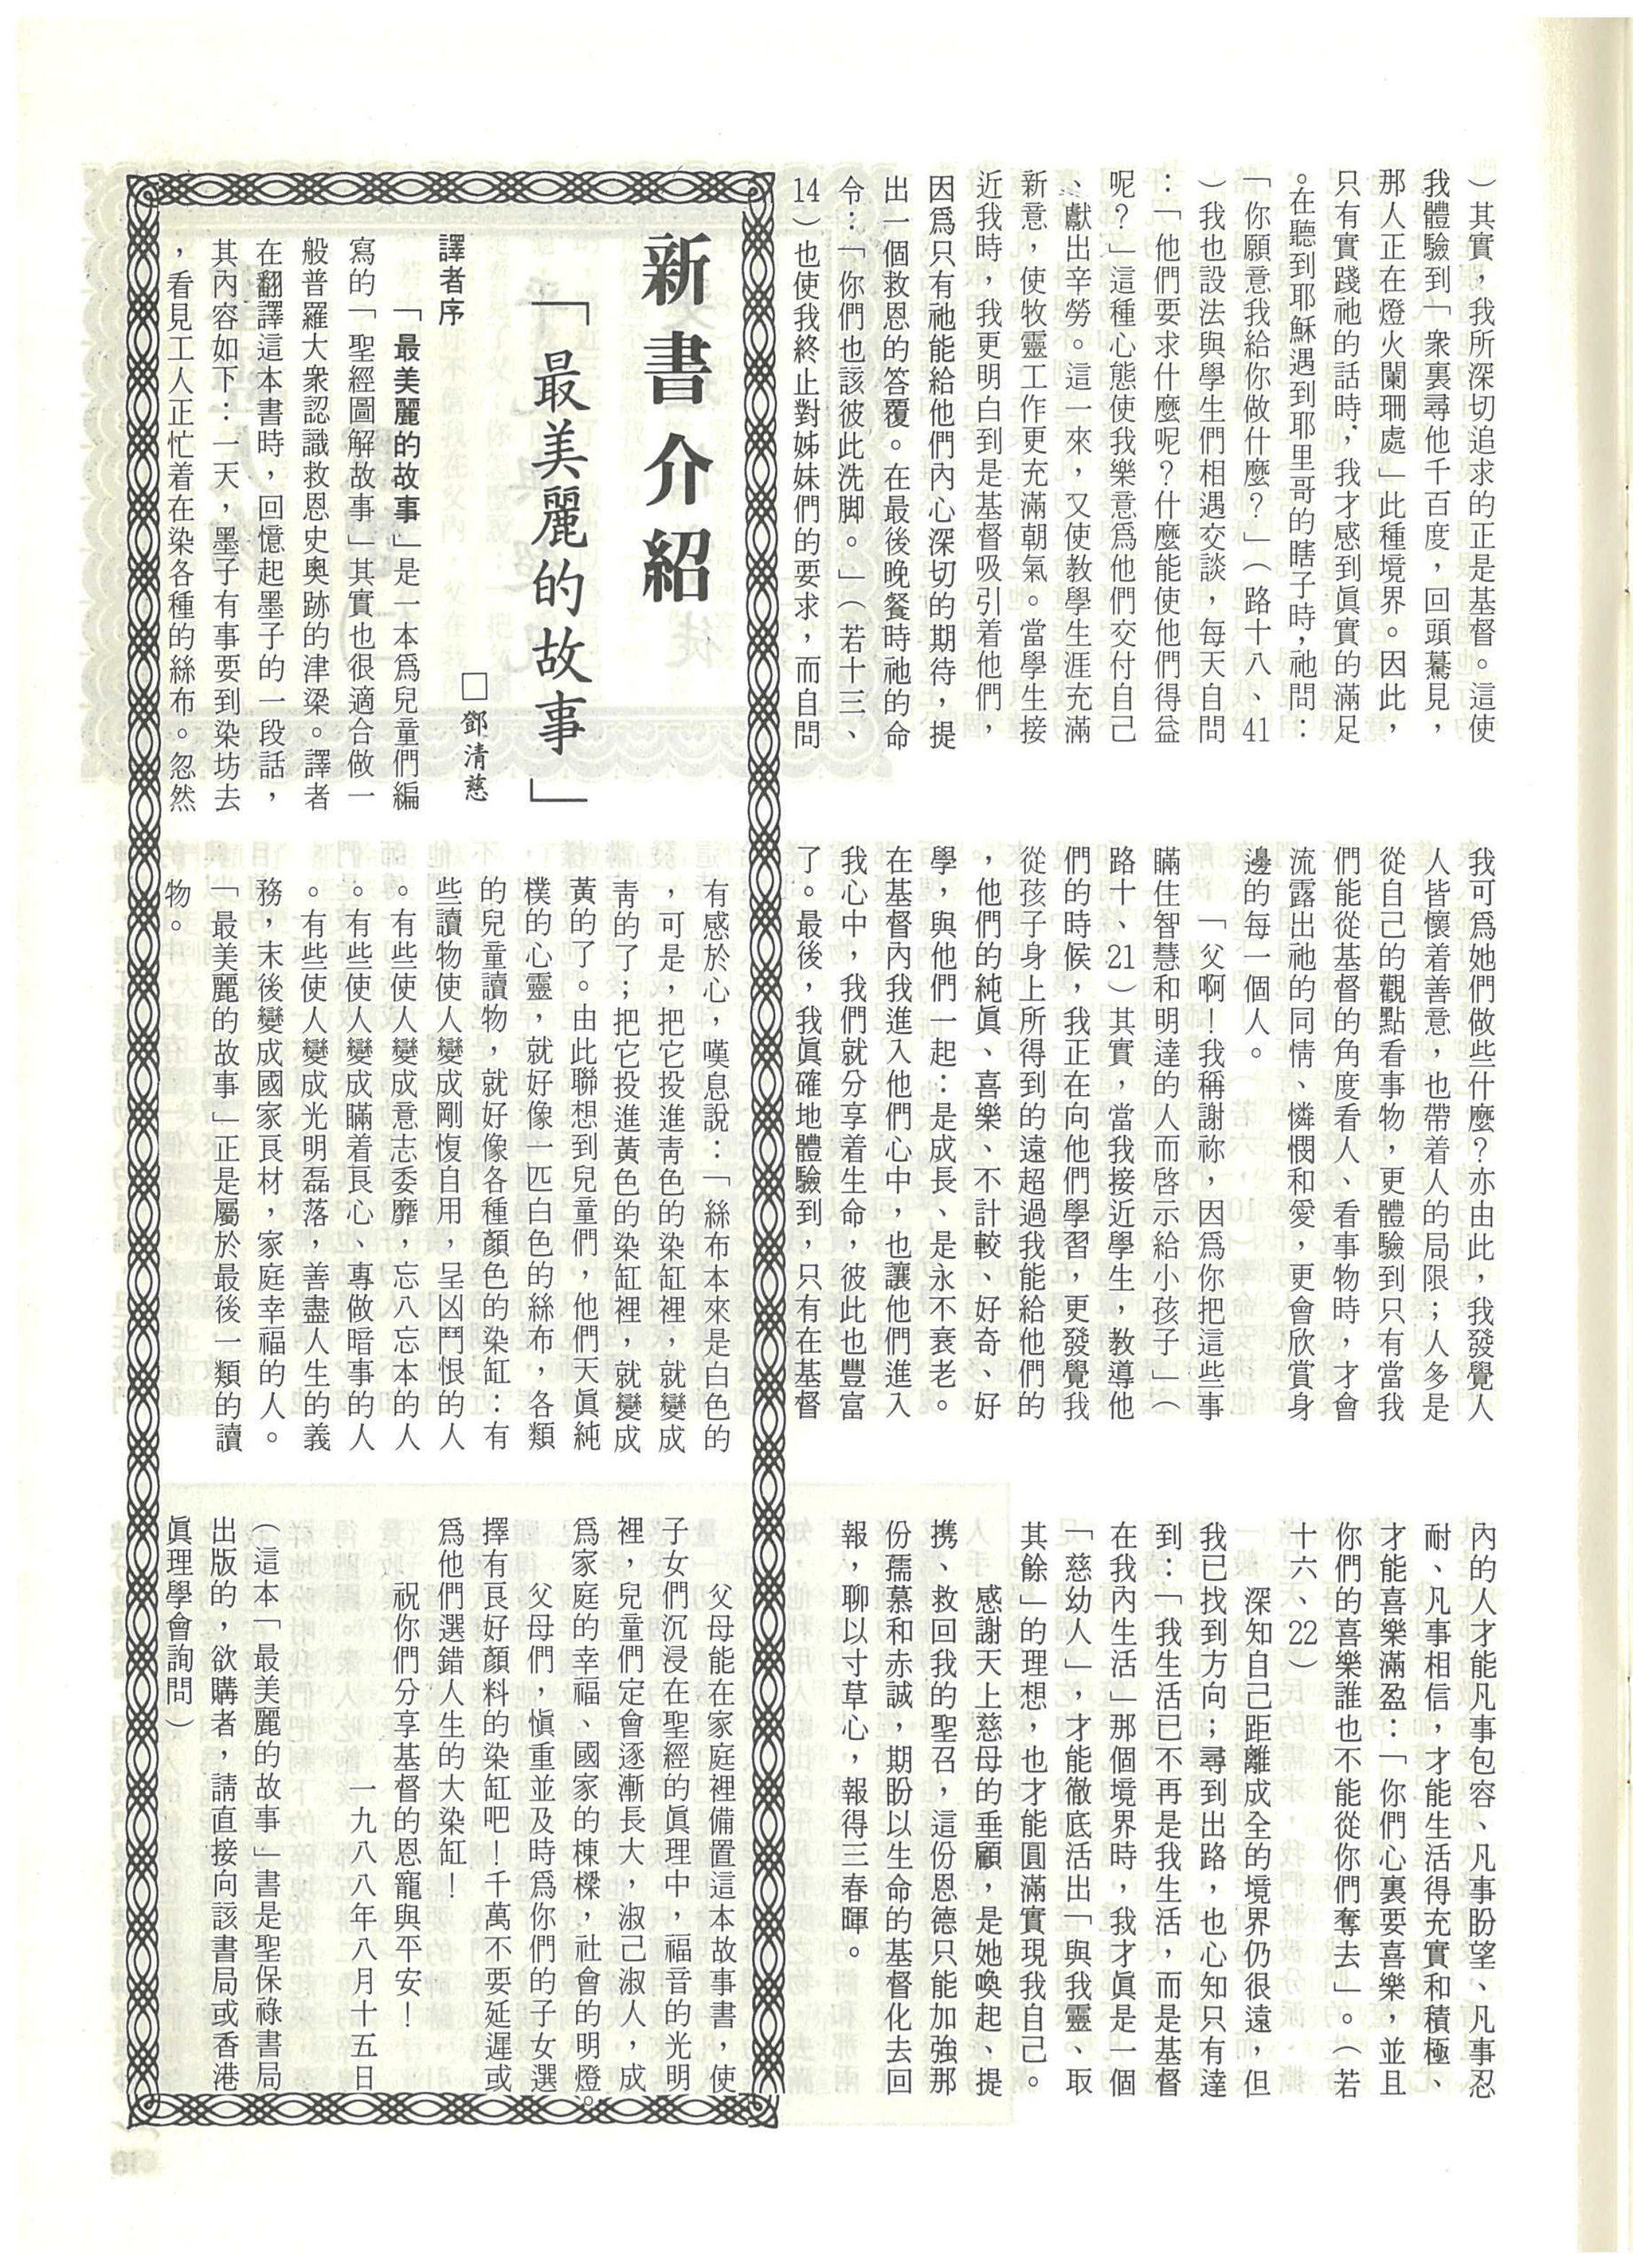 ）其實，我所深切追求的正是基督。這使
我體驗到「衆裏尋他千百度，回頭驀見，
那人正在燈火闌珊處」此種境界。因此，
只有實踐祂的話時，我才感到眞實的滿足
。在聽到耶穌遇到耶里哥的瞎子時，祂問：
「你願意我給你做什麼？」（路十八、41
）我也設法與學生們相遇交談，每天自問
：「他們要求什麼呢？什麼能使他們得益
呢？」這種心態使我樂意爲他們交付自己
、獻出辛勞。這一來，又使教學生涯充滿
新意，使牧靈工作更充滿朝氣。當學生接
近我時，我更明白到是基督吸引着他們，
因爲只有祂能給他們內心深切的期待，提
出一個救恩的答覆。在最後晚餐時祂的命
令：「你們也該彼此洗脚。」（若十三、
14）也使我終止對姊妹們的要求，而自問
我可爲她們做些什麼？亦由此，我發覺人
人皆懷着善意，也帶着人的局限；人多是
從自己的觀點看事物，更體驗到只有當我
們能從基督的角度看人、看事物時，才會
流露出祂的同情、憐憫和愛，更會欣賞身
邊的每一個人。
「父啊！我稱謝祢，因爲你把這些事
瞞住智慧和明達的人而啓示給小孩子」（
路十、21）其實，當我接近學生，教導他
們的時候，我正在向他們學習，更發覺我
從孩子身上所得到的遠超過我能給他們的
，他們的純眞、喜樂、不計較、好奇、好
學，與他們一起：是成長、是永不衰老。
在基督內我進入他們心中，也讓他們進入
我心中，我們就分享着生命，彼此也豐富
了。最後，我眞確地體驗到，只有在基督
內的人才能凡事包容、凡事盼望、凡事忍
耐、凡事相信，才能生活得充實和積極、
才能喜樂滿盈：「你們心裏要喜樂，並且
你們的喜樂誰也不能從你們奪去」。（若
十六、22）
深知自己距離成全的境界仍很遠，但
我已找到方向；尋到出路，也心知只有達
到：「我生活已不再是我生活，而是基督
在我內生活」那個境界時，我才眞是一個
「慈幼人」，才能徹底活出「與我靈、取
其餘」的理想，也才能圓滿實現我自己。
感謝天上慈母的垂顧，是她喚起、提
携、救回我的聖召，這份恩德只能加強那
份孺慕和赤誠，期盼以生命的基督化去回
報，聊以寸草心，報得三春暉。
新書介紹
「最美麗的故事」
□鄧清慈
譯者序
「最美麗的故事」是一本爲兒童們編
寫的「聖經圖解故事」其實也很適合做一
般普羅大衆認識救恩史奥跡的津梁。譯者
在翻譯這本書時，回憶起墨子的一段話，
其內容如下：一天，墨子有事要到染坊去
，看見工人正忙着在染各種的絲布。忽然
有感於心，嘆息說：「絲布本來是白色的
，可是，把它投進靑色的染缸裡，就變成
靑的了；把它投進黃色的染缸裡，就變成
黃的了。由此聯想到兒童們，他們天眞純
樸的心靈，就好像一匹白色的絲布，各類
的兒童讀物，就好像各種顏色的染缸：有
些讀物使人變成剛愎自用，呈凶鬥恨的人
。有些使人變成意志委靡，忘八忘本的人
。有些使人變成瞞着良心、專做暗事的人
。有些使人變成光明磊落，善盡人生的義
務，末後變成國家良材，家庭幸福的人。
「最美麗的故事」正是屬於最後一類的讀
物。
父母能在家庭裡備置這本故事書，使
子女們沉浸在聖經的眞理中，福音的光明
裡，兒童們定會逐漸長大，淑己淑人，成
爲家庭的幸福、國家的棟樑，社會的明燈。
父母們，愼重並及時爲你們的子女選
擇有良好顏料的染缸吧！千萬不要延遲或
爲他們選錯人生的大染缸！
祝你們分享基督的恩寵與平安！
一九八八年八月十五日
（這本「最美麗的故事」書是聖保祿書局
出版的，欲購者，請直接向該書局或香港
眞理學會詢問）